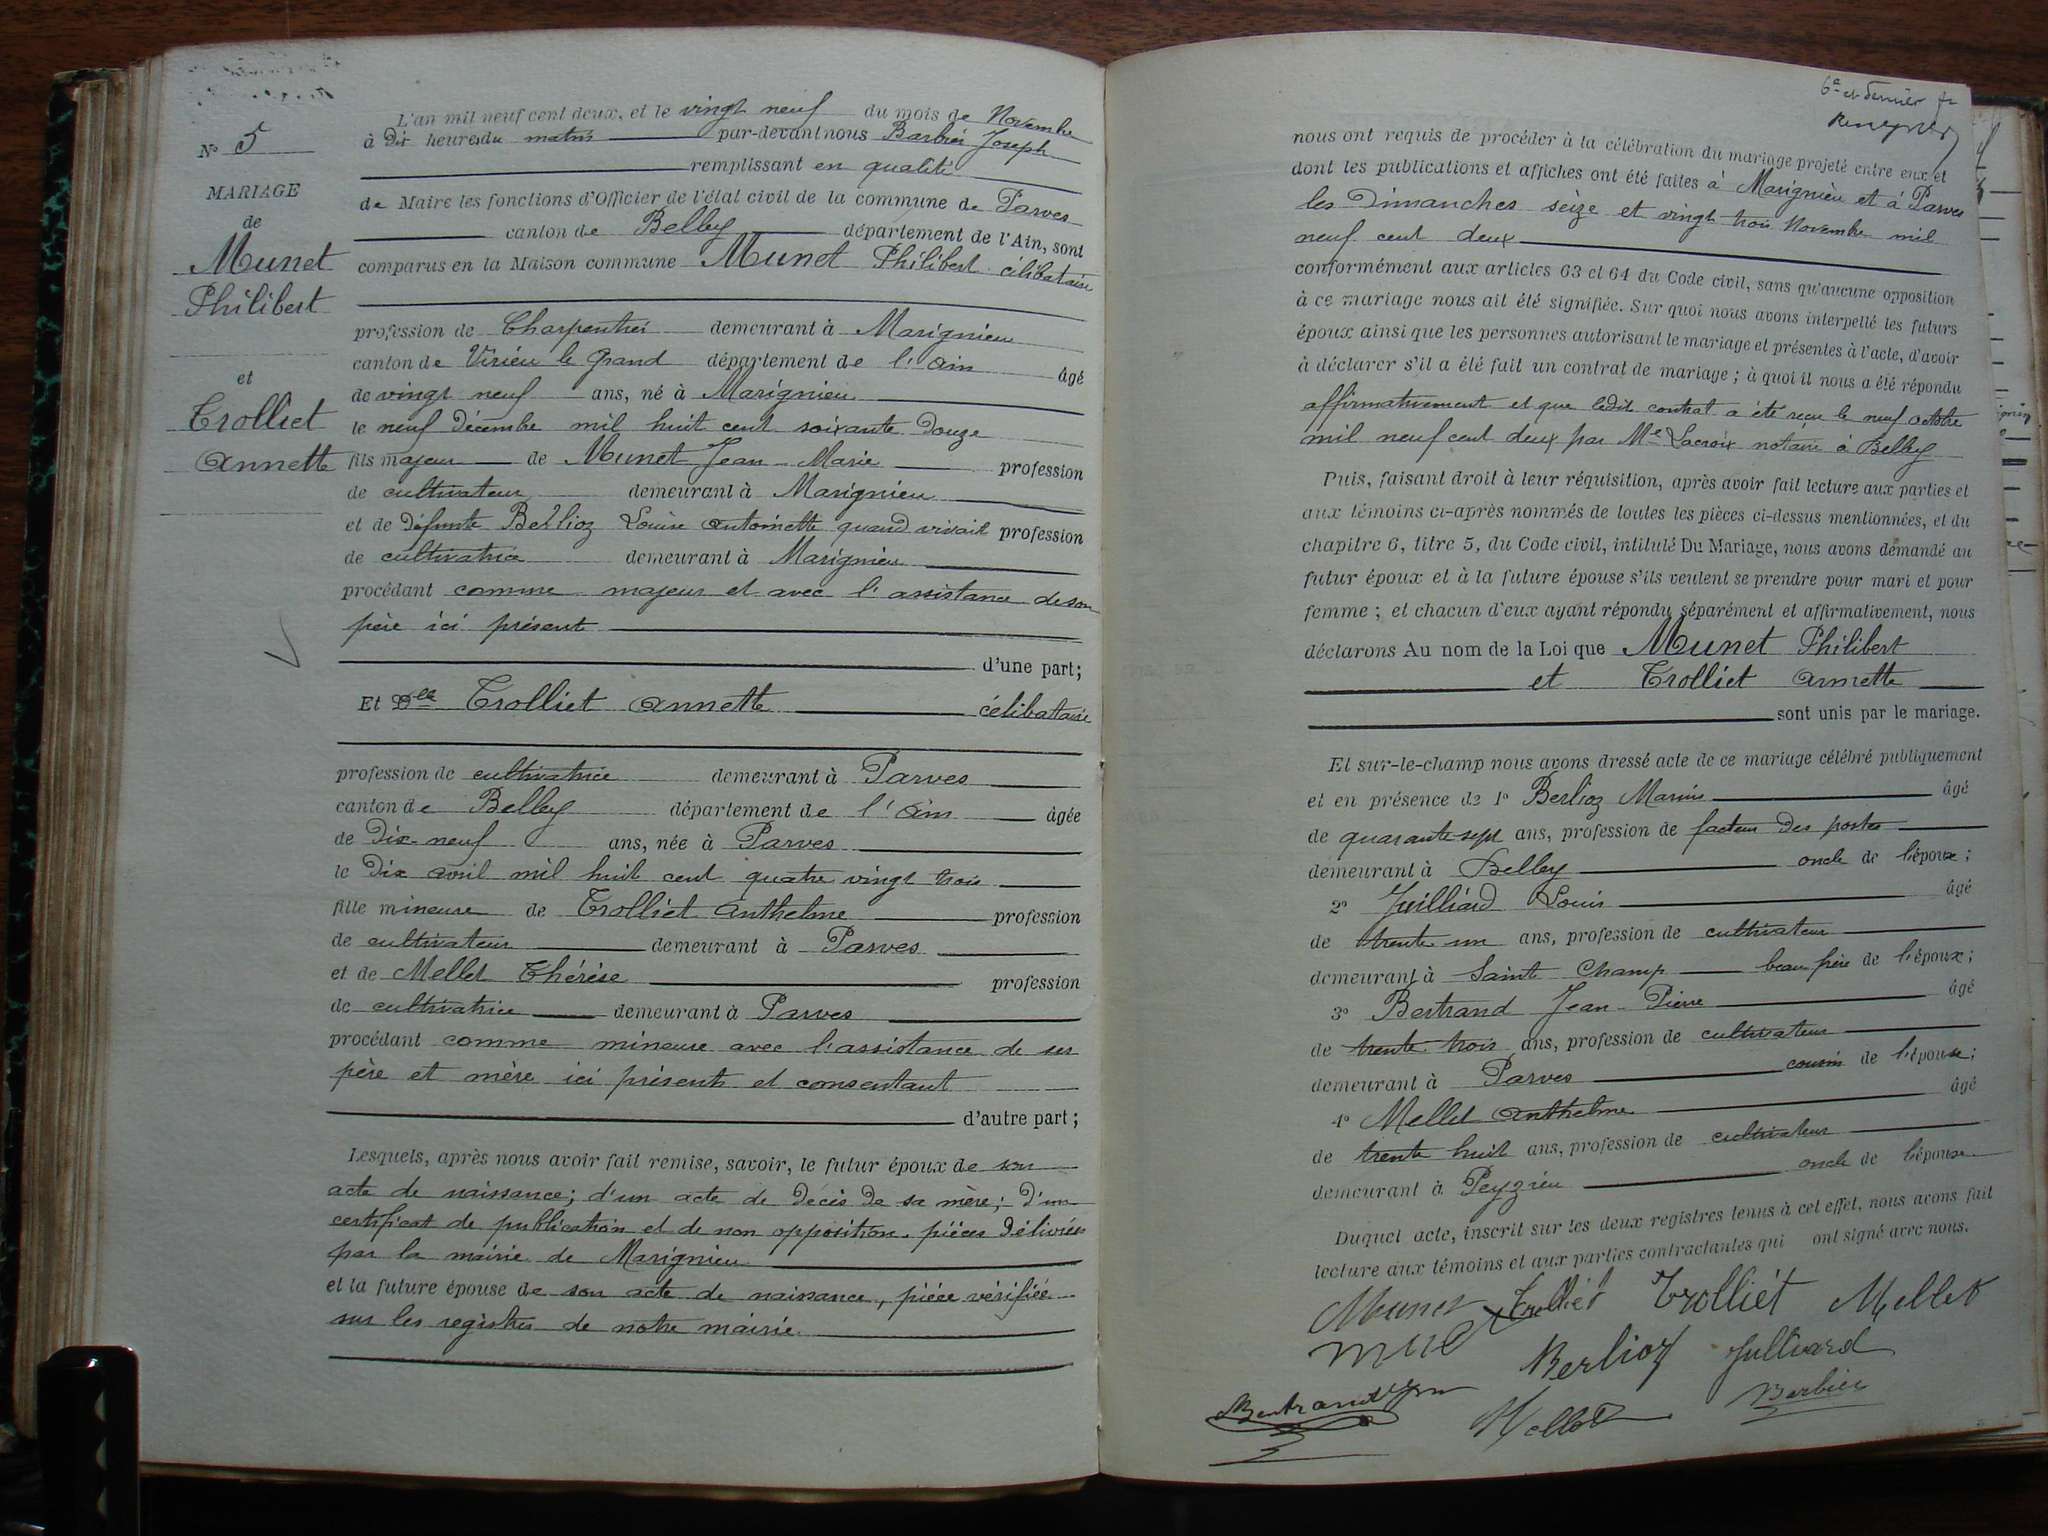 N° 5
MARIAGE
de
Munet
Philibert
et
Trolliet
Annette
L'an mil neuf cent deux, et le vingt neuf du mois de Novembre
à Dix heures du matin par-devant nous Barbier Joseph
remplissant en qualité
de Maire les fonctions d'Officier de l'état civil de la commune de Parves
canton de Belley département de l'Ain, sont
comparus en la Maison commune Munet Philibert célibataire
profession de Charpentier demeurant à Marignieu
canton de Virieu le Grand département de l'Ain âgé
de vingt neuf ans, né à Marignieu
le neuf Décembre mil huit cent soixante Douze
fils majeur de Munet Jean-Marie profession
de cultivateur demeurant à Marignieu
et de Défunte Berlioz Louise Antoinette quand vivait profession
de cultivatrice demeurant à Marignieu
procédant comme majeur et avec l'assistance de son
père ici présent
d'une part;
Et Dlle Trolliet Annette célibataire
profession de cultivatrice demeurant à Parves
canton de Belley département de l'Ain âgée
de Dix-neuf ans, née à Parves
le Dix avril mil huit cent quatre vingt trois
fille mineure de Trolliet Anthelme profession
de cultivateur demeurant à Parves
et de Mellet Thérèse profession
de cultivatrice demeurant à Parves
procédant comme mineure avec l'assistance de ses
père et mère ici présents et consentant
d'autre part;
Lesquels, après nous avoir fait remise, savoir, le futur époux de son
acte de naissance; d'un acte de Décès De sa mère; D'un
certificat de publication et de non opposition, pièces Délivrées
par la mairie de Marignieu
et la future épouse de son acte de naissance, pièce vérifiée
sur les registres de notre mairie.
6e et dernier
nous ont requis de procéder à la célébration du mariage projeté entre eux et
dont les publications et affiches ont été faites à Marignieu et à Parves
les Dimanches seize et vingt trois Novembre mil
neuf cent deux
conformément aux articles 63 et 64 du Code civil, sans qu'aucune opposition
à ce mariage nous ait été signifiée. Sur quoi nous avons interpellé les futurs
époux ainsi que les personnes autorisant le mariage et présentes à l'acte, d'avoir
à déclarer s'il a été fait un contrat de mariage; à quoi il nous a été répondu
affirmativement et que ledit contrat a été reçu le neuf octobre
mil neuf cent deux par Me Lacroix notaire à Belley
Puis, faisant droit à leur réquisition, après avoir fait lecture aux parties et
aux témoins ci-après nommés de toutes les pièces ci-dessus mentionnées, et du
chapitre 6, titre 5, du Code civil, intitulé Du Mariage, nous avons demandé au
futur époux et à la future épouse s'ils veulent se prendre pour mari et pour
femme; et chacun d'eux ayant répondu séparément et affirmativement, nous
déclarons Au nom de la Loi que Munet Philibert
et Trolliet Annette
sont unis par le mariage.
Et sur-le-champ nous avons dressé acte de ce mariage célébré publiquement
et en présence de 1° Berlioz Marius âgé
de quarante sept ans, profession de facteur Des postes
demeurant à Belley oncle de l'époux;
2° Juilliard Louis âgé
de trente un ans, profession de cultivateur
demeurant à Saint Champ beau frère de l'époux;
3° Bertrand Jean-Pierre âgé
de trente trois ans, profession de cultivateur
demeurant à Parves cousin de l'épouse;
4° Mellet Anthelme âgé
de trente huit ans, profession de cultivateur
demeurant à Peyzieu oncle de l'épouse
Duquel acte, inscrit sur les deux registres tenus à cet effet, nous avons fait
lecture aux témoins et aux parties contractantes qui ont signé avec nous.
Munet Trolliet Trolliét Mellet
Berlioz Juilliard
Bertrand Mellet Barbier